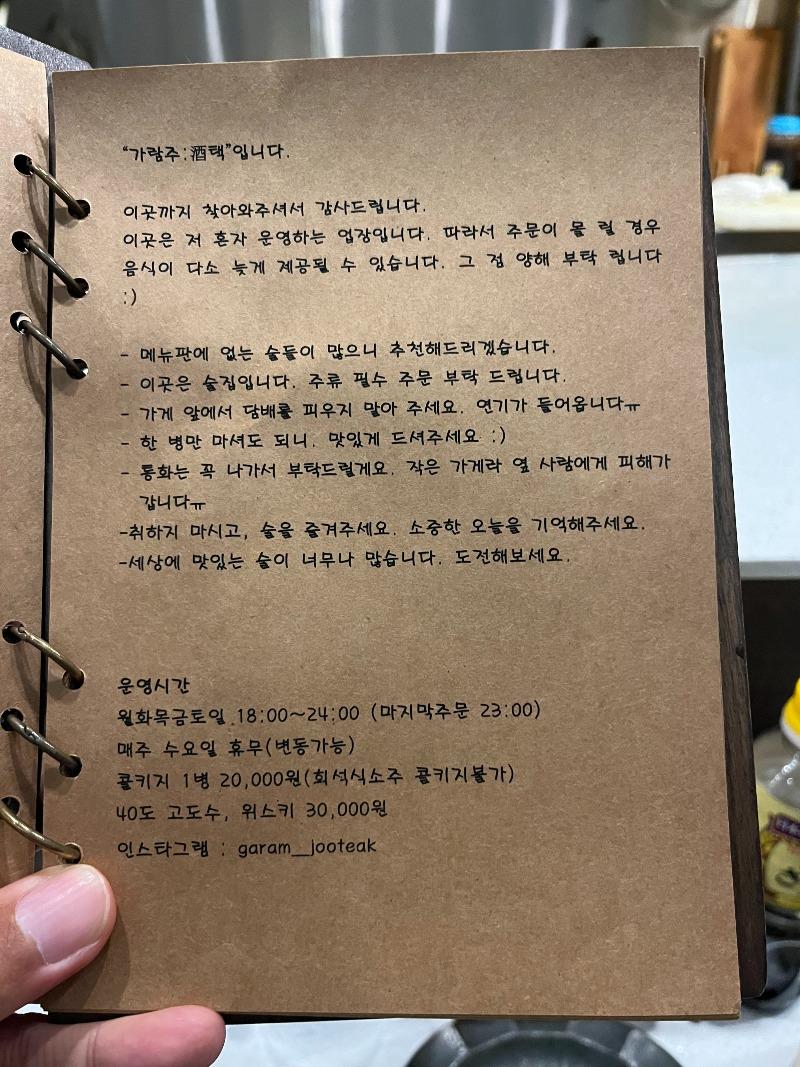 “가람주:酒택”입니다.
이곳까지 찾아와주셔서 감사드립니다.
이곳은 저 혼자 운영하는 업장입니다. 따라서 주문이 몰 릴 경우
음식이 다소 늦게 제공될 수 있습니다. 그 점 양해 부탁 립니다
:)
- 메뉴판에 없는 술들이 많으니 추천해드리겠습니다.
- 이곳은 술집입니다. 주류 필수 주문 부탁 드립니다.
- 가게 앞에서 담배를 피우지 말아 주세요. 연기가 들어옵니다ㅠ
- 한 병만 마셔도 되니. 맛있게 드셔주세요 :)
- 통화는 꼭 나가서 부탁드릴게요. 작은 가게라 옆 사람에게 피해가
갑니다ㅠ
-취하지 마시고, 술을 즐겨주세요. 소중한 오늘을 기억해주세요.
-세상에 맛있는 술이 너무나 많습니다. 도전해보세요.
운영시간
월화목금토일 18:00~24:00 (마지막주문 23:00)
매주 수요일 휴무(변동가능)
콜키지 1병 20,000원(희석식소주 콜키지불가)
40도 고도수, 위스키 30,000원
인스타그램 : garam__jooteak